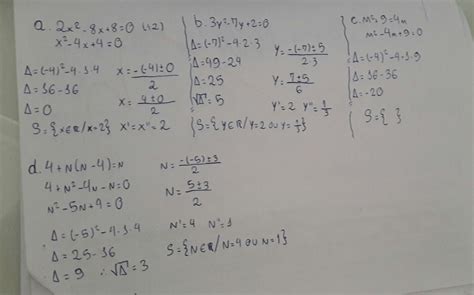 a. 2x² - 8x + 8 = 0 (÷2)
x² - 4x + 4 = 0
Δ = (-4)² - 4·1·4
Δ = 16 - 16
Δ = 0
x = -(-4)±0 / 2
x = 4±0 / 2
S = {x∈R/x=2} x' = x'' = 2
b. 3y² - 7y + 2 = 0
Δ = (-7)² - 4·2·3
Δ = 49 - 24
Δ = 25
√Δ = 5
y = -(-7)±5 / 2·3
y = 7±5 / 6
y' = 2 y'' = 1/3
S = {y∈R/y=2 ou y=1/3}
c. m² + 9 = 4m
m² - 4m + 9 = 0
Δ = (-4)² - 4·1·9
Δ = 16 - 36
Δ = -20
S = { }
d. 4 + N(N-4) = N
4 + N² - 4N - N = 0
N² - 5N + 4 = 0
Δ = (-5)² - 4·1·4
Δ = 25 - 16
Δ = 9 ∴ √Δ = 3
N = -(-5)±3 / 2
N = 5±3 / 2
N' = 4 N'' = 1
S = {N∈R/N=4 ou N=1}